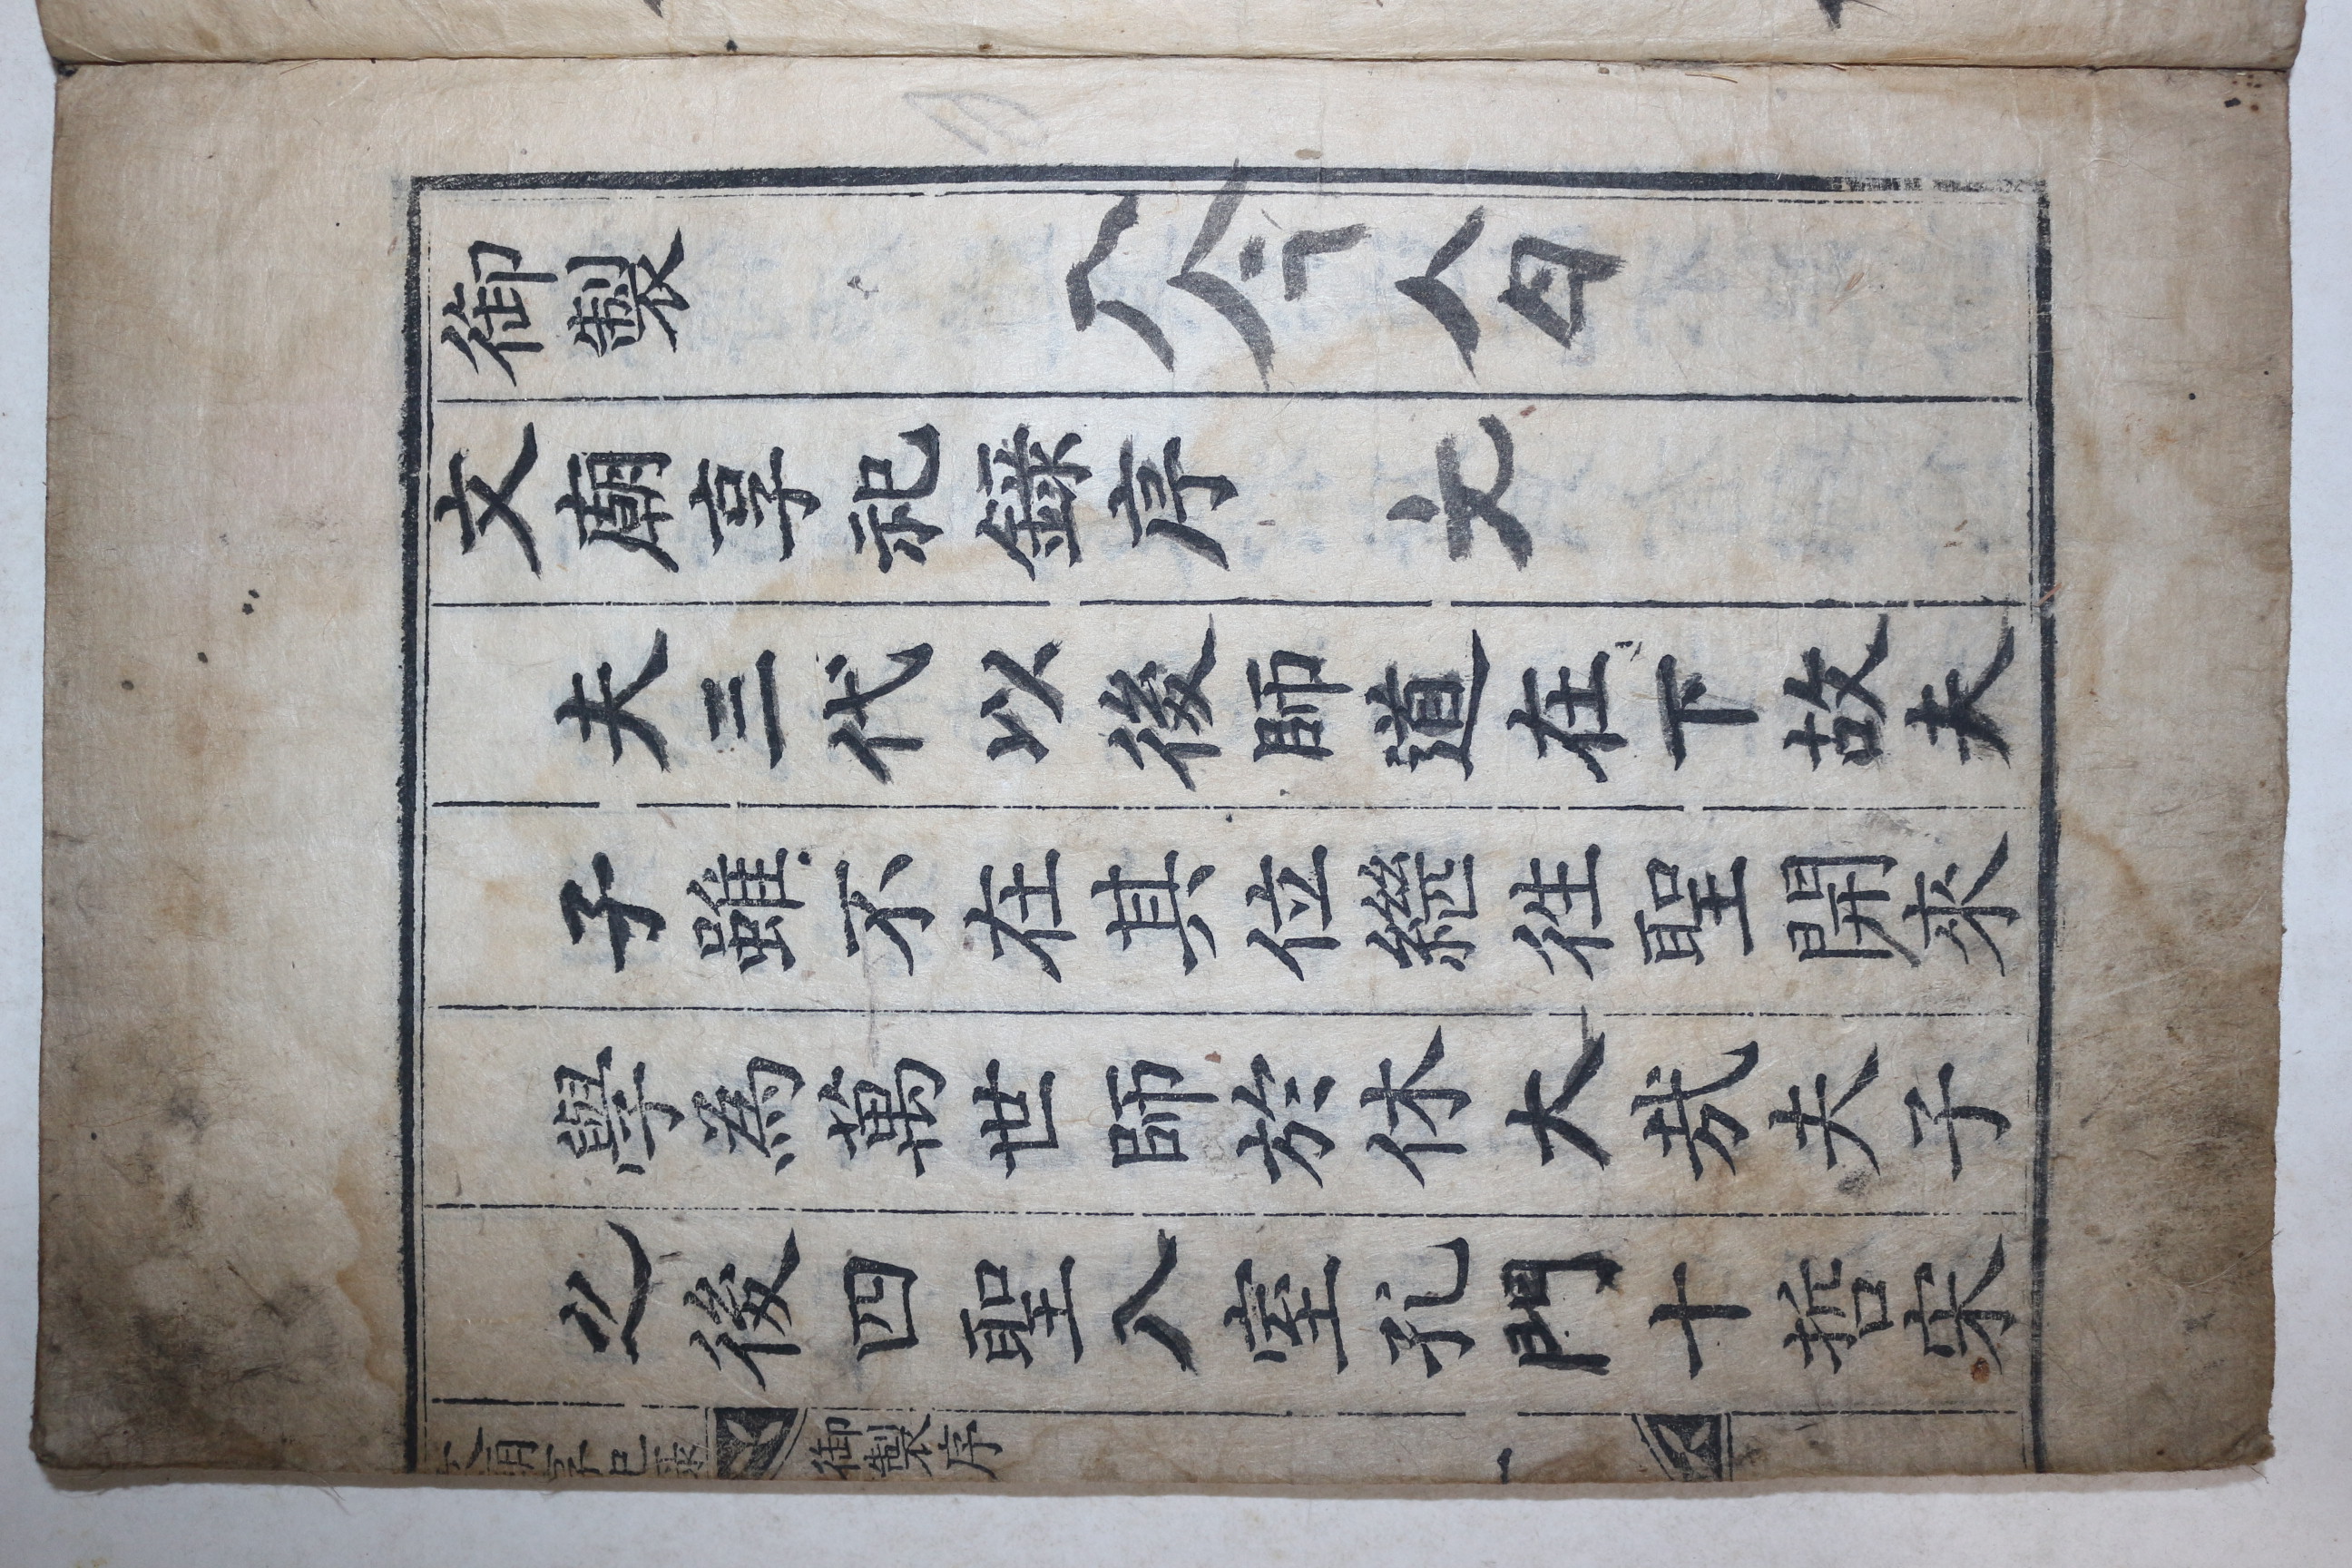 御製
文廟享祀錄序
夫三代以後師道在下故夫
子雖不在其位繼往聖開來
學為萬世師於休大哉夫子
之後四聖入室孔門十哲宋
文廟享祀錄
御製序
一